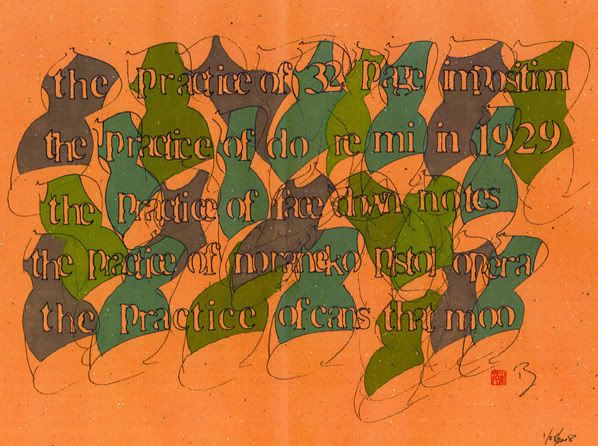 the practice of 32 page imposition
the practice of do re mi in 1929
the practice of face down notes
the practice of noraneko pistol opera
the practice of cans that moo